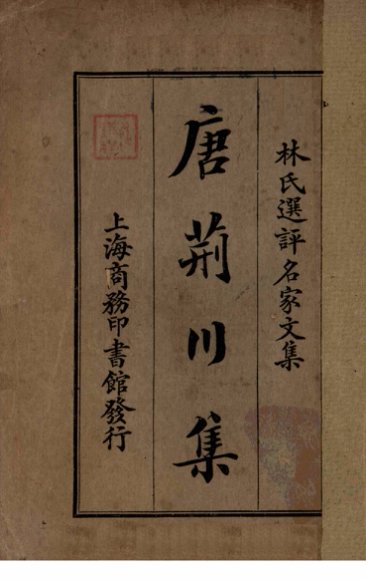 林氏選評名家文集
唐荊川集
上海商務印書館發行